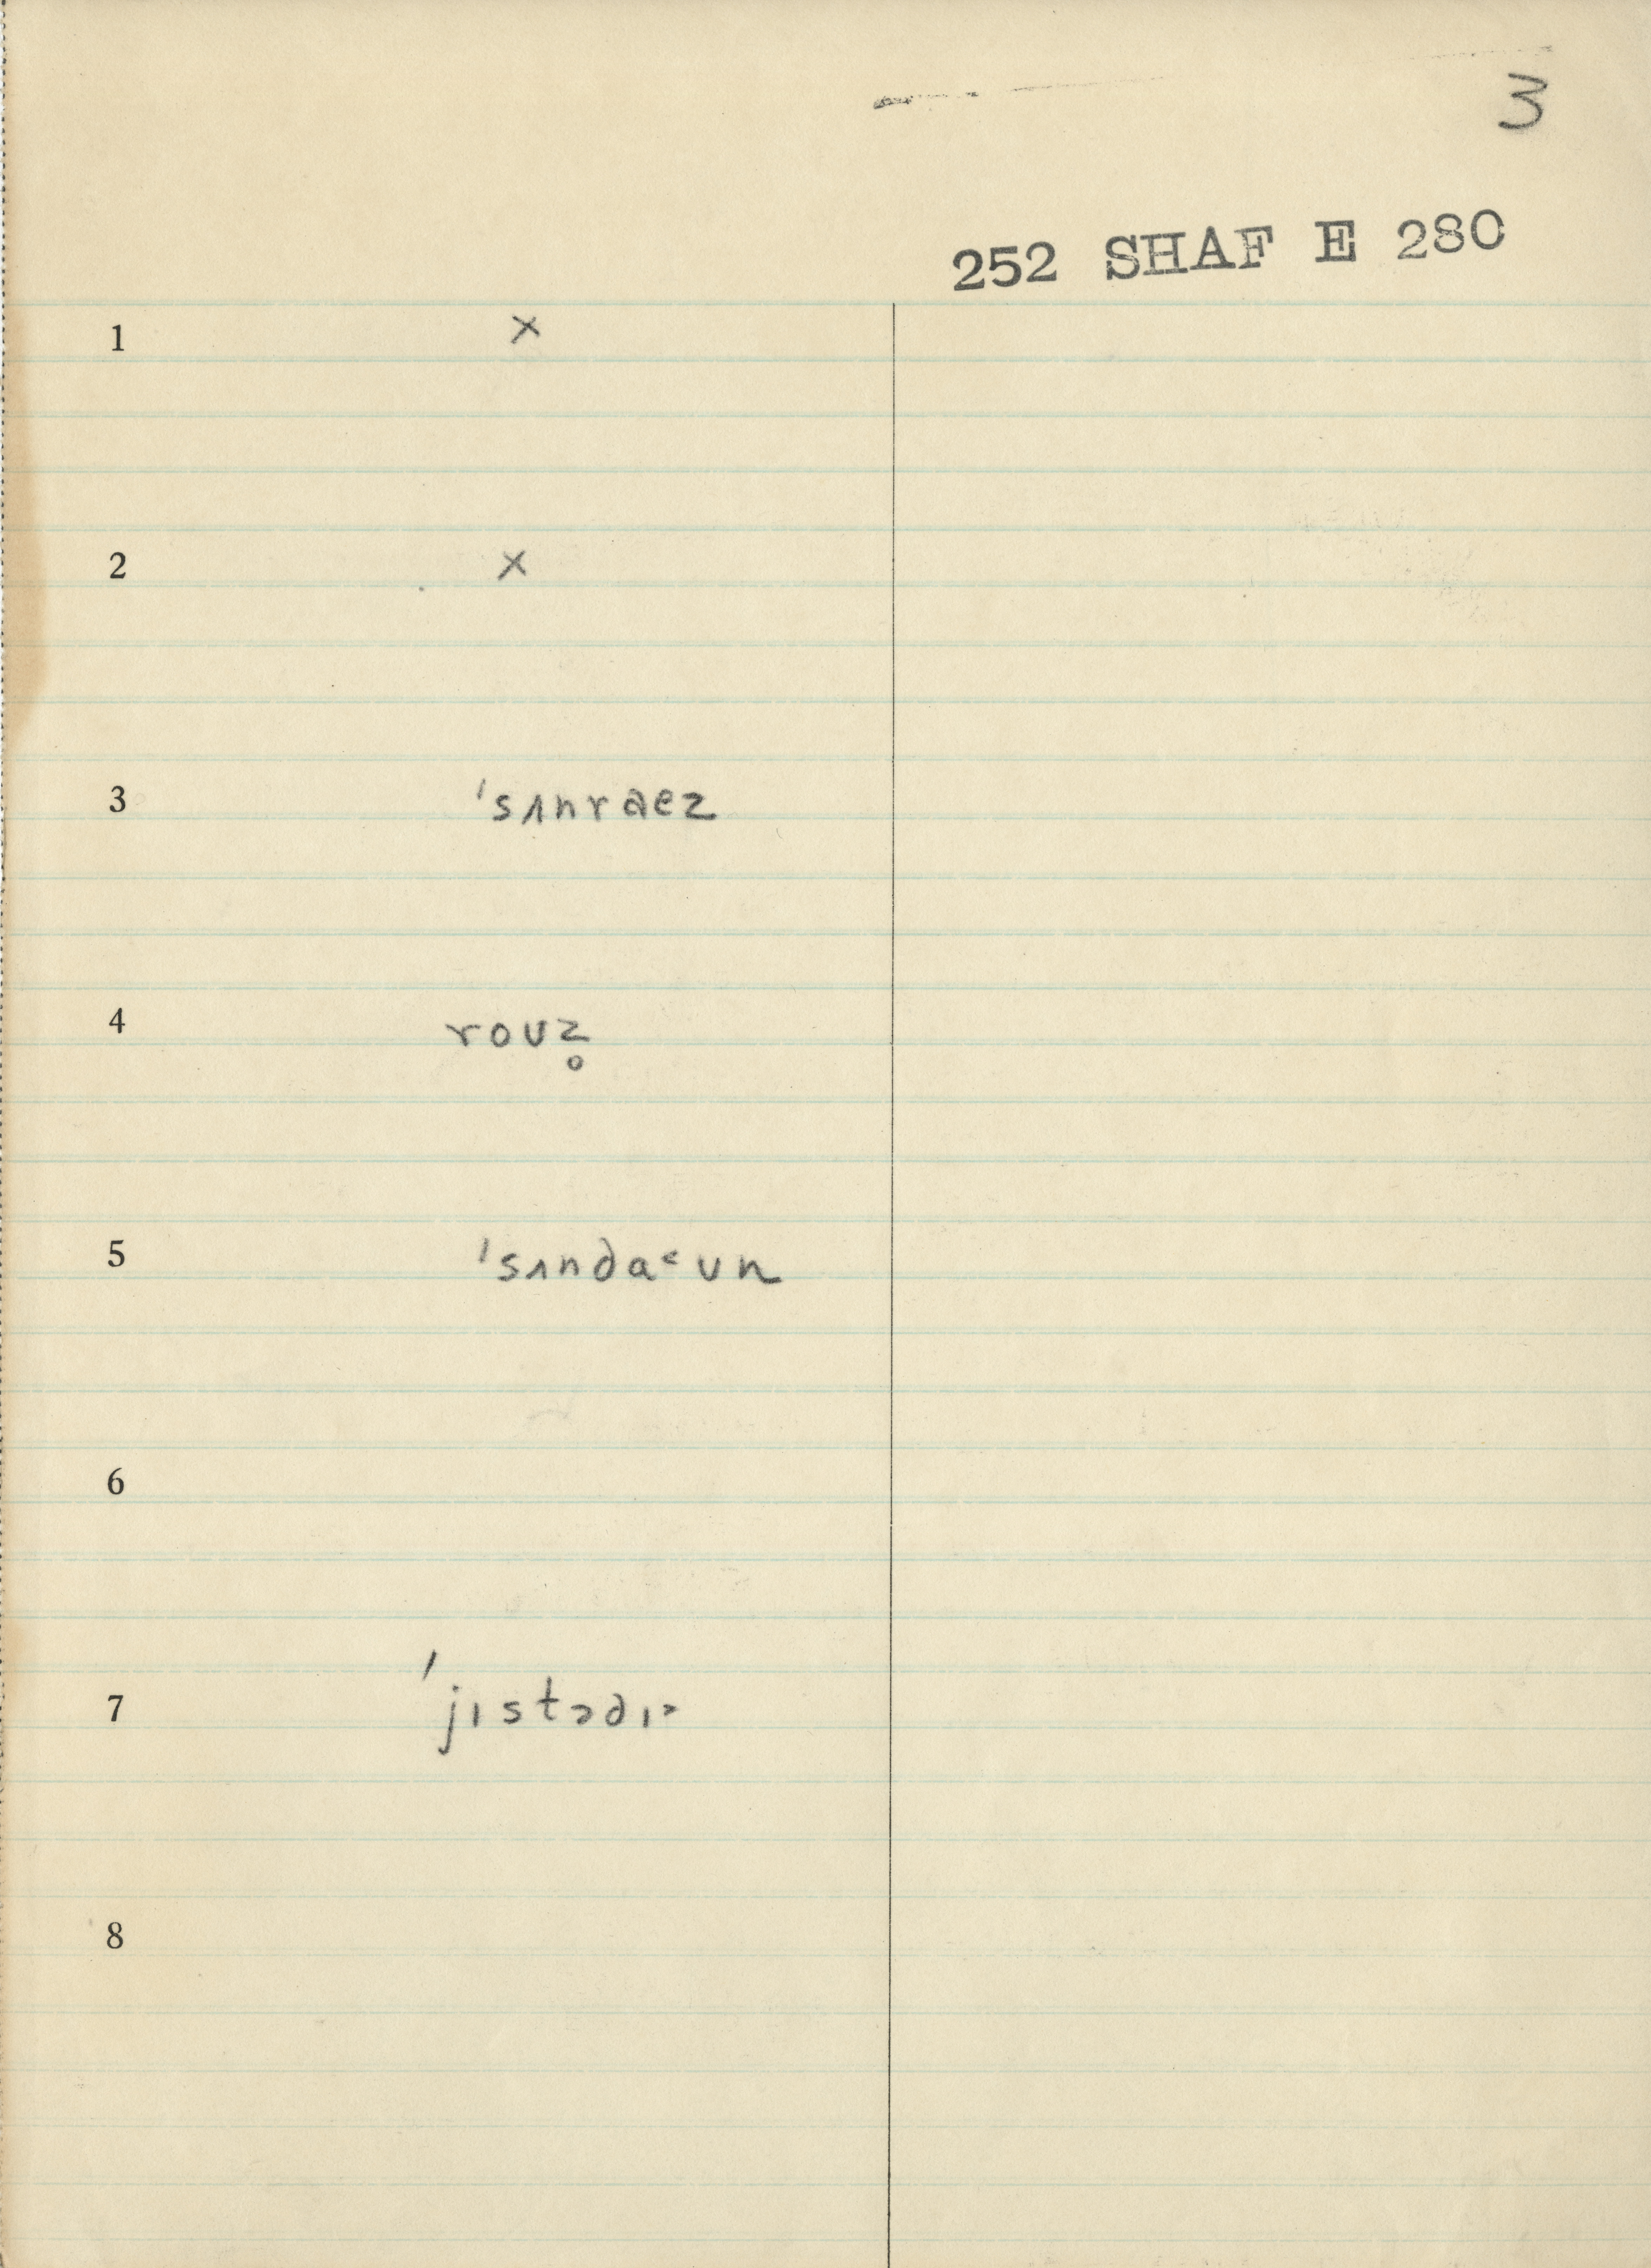 3
252 SHAF E 280
1 x
2 x
3 ˈsʌnraez
4 roʊz̥
5 ˈsʌndaᵋʊn
6
7 ˈjɪstədɪ˃
8